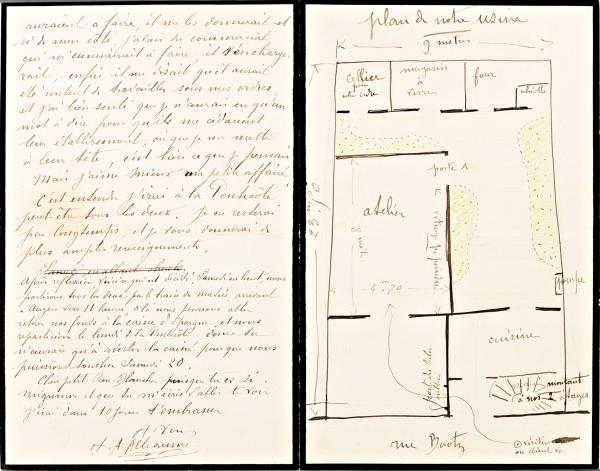 auraient à faire, il me les donnerait et
si de mon côté j'avais du commercial
qui m'ennuierait à faire, il s'en charge
rait, enfin il me disait qu'il aurait
été content de travailler sous mes ordres
et j'ai bien senti que je n'aurais eu qu'un
mot à dire pour qu'ils me cédassent
leur établissement, ou que je me mette
à leur tête, c'est bien ce que je pensais
Mais j'aime mieux ma petite affaire
C'est entendu j'irai à la Pentecôte
peut-être tous les deux. Je ne resterai
pas longtemps, et je vous donnerai de
plus amples renseignements.
Samedi en allant
Après réflexion voici ce qui est décidé, Samedi en huit, nous
partirons tous les deux par le train de matin arrivant
à Angers vers 11 heures, et là nous pourrons aller
retirer nos fonds à la caisse d'épargne, et nous
repartirons le lundi de la Pentecôte donc tu
n'aurais qu'à avertir la caisse pour que nous
puissions toucher Samedi 20.
Chère petite Rose Blanche, puisque tu es si
mignonne et que tu m'écris d'aller te voir
j'irai dans 10 jours t'embrasser
A vous
plan de notre usine
9 metres
Cellier
pour
notre cidre
magasin
à
verres
four
porte A
atelier
8 mèt.
4 m. 70
pompe
cuisine
montant
à nos 2 étages
rue Bootz
visiteur
ou client